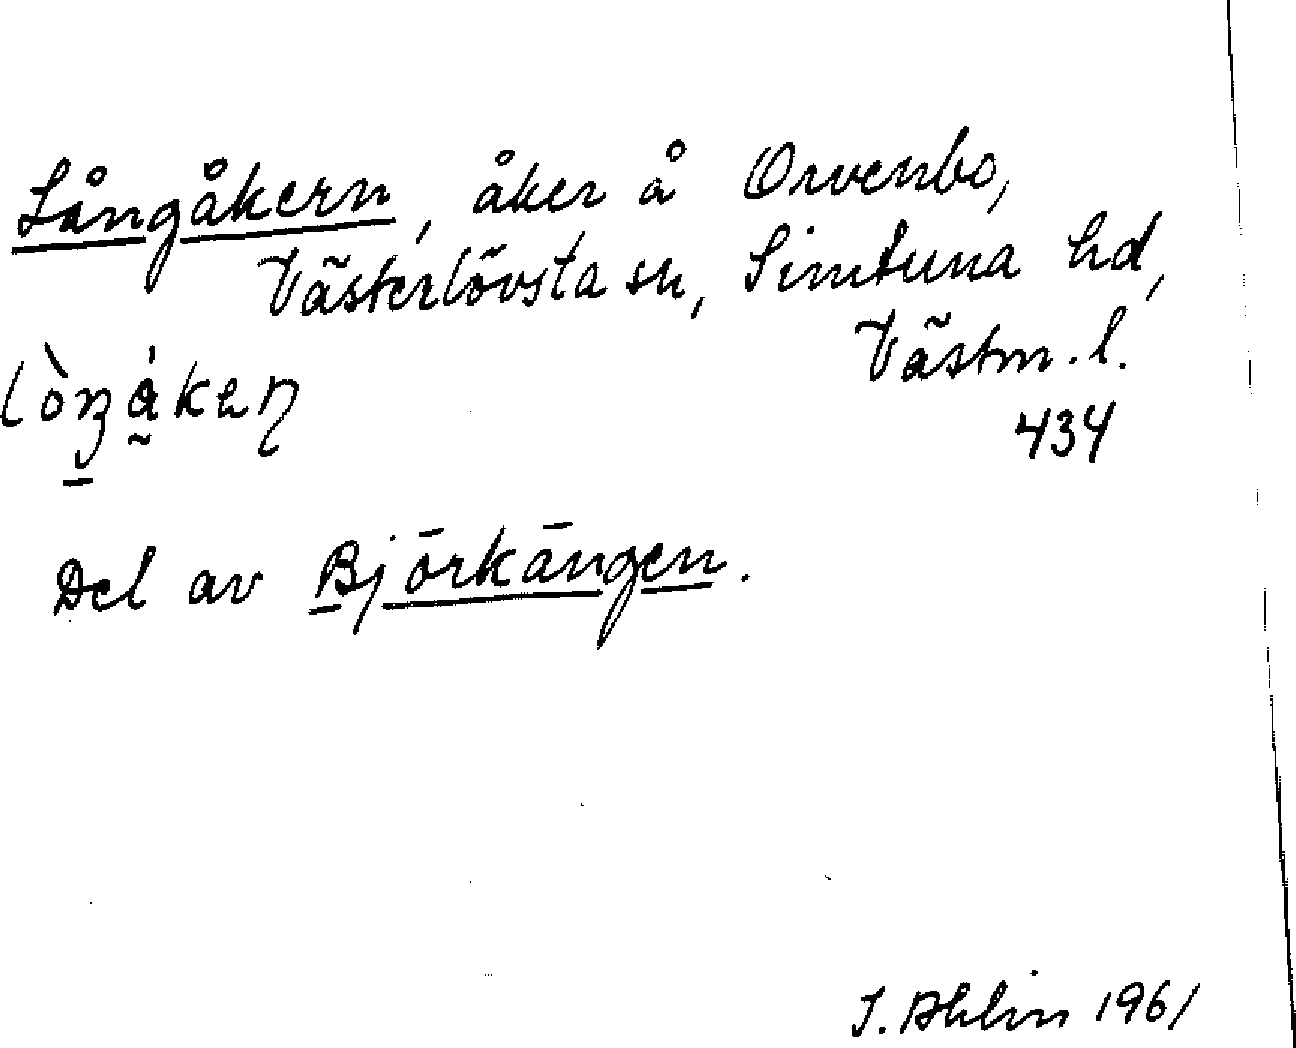 Långåkern, åker å Orvenbo,
Västerlövsta sn, Simtuna hd,
Västm. l.
434
Del av Björkängen.
I. Ahlin 1961